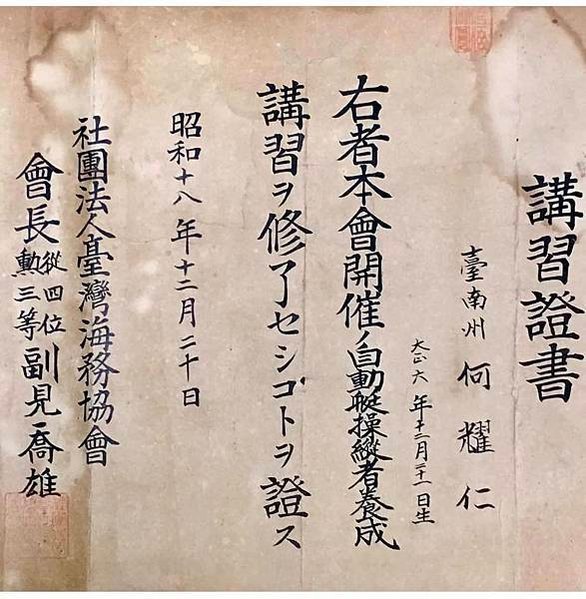 講習證書
臺南州 何耀仁
大正六年十二月二十一日生
右者本會開催ノ自動艇操縱者養成
講習ヲ修了セシコトヲ證ス
昭和十八年十二月二十日
社團法人臺灣海務協會
會長 從四位 勳三等 副見喬雄